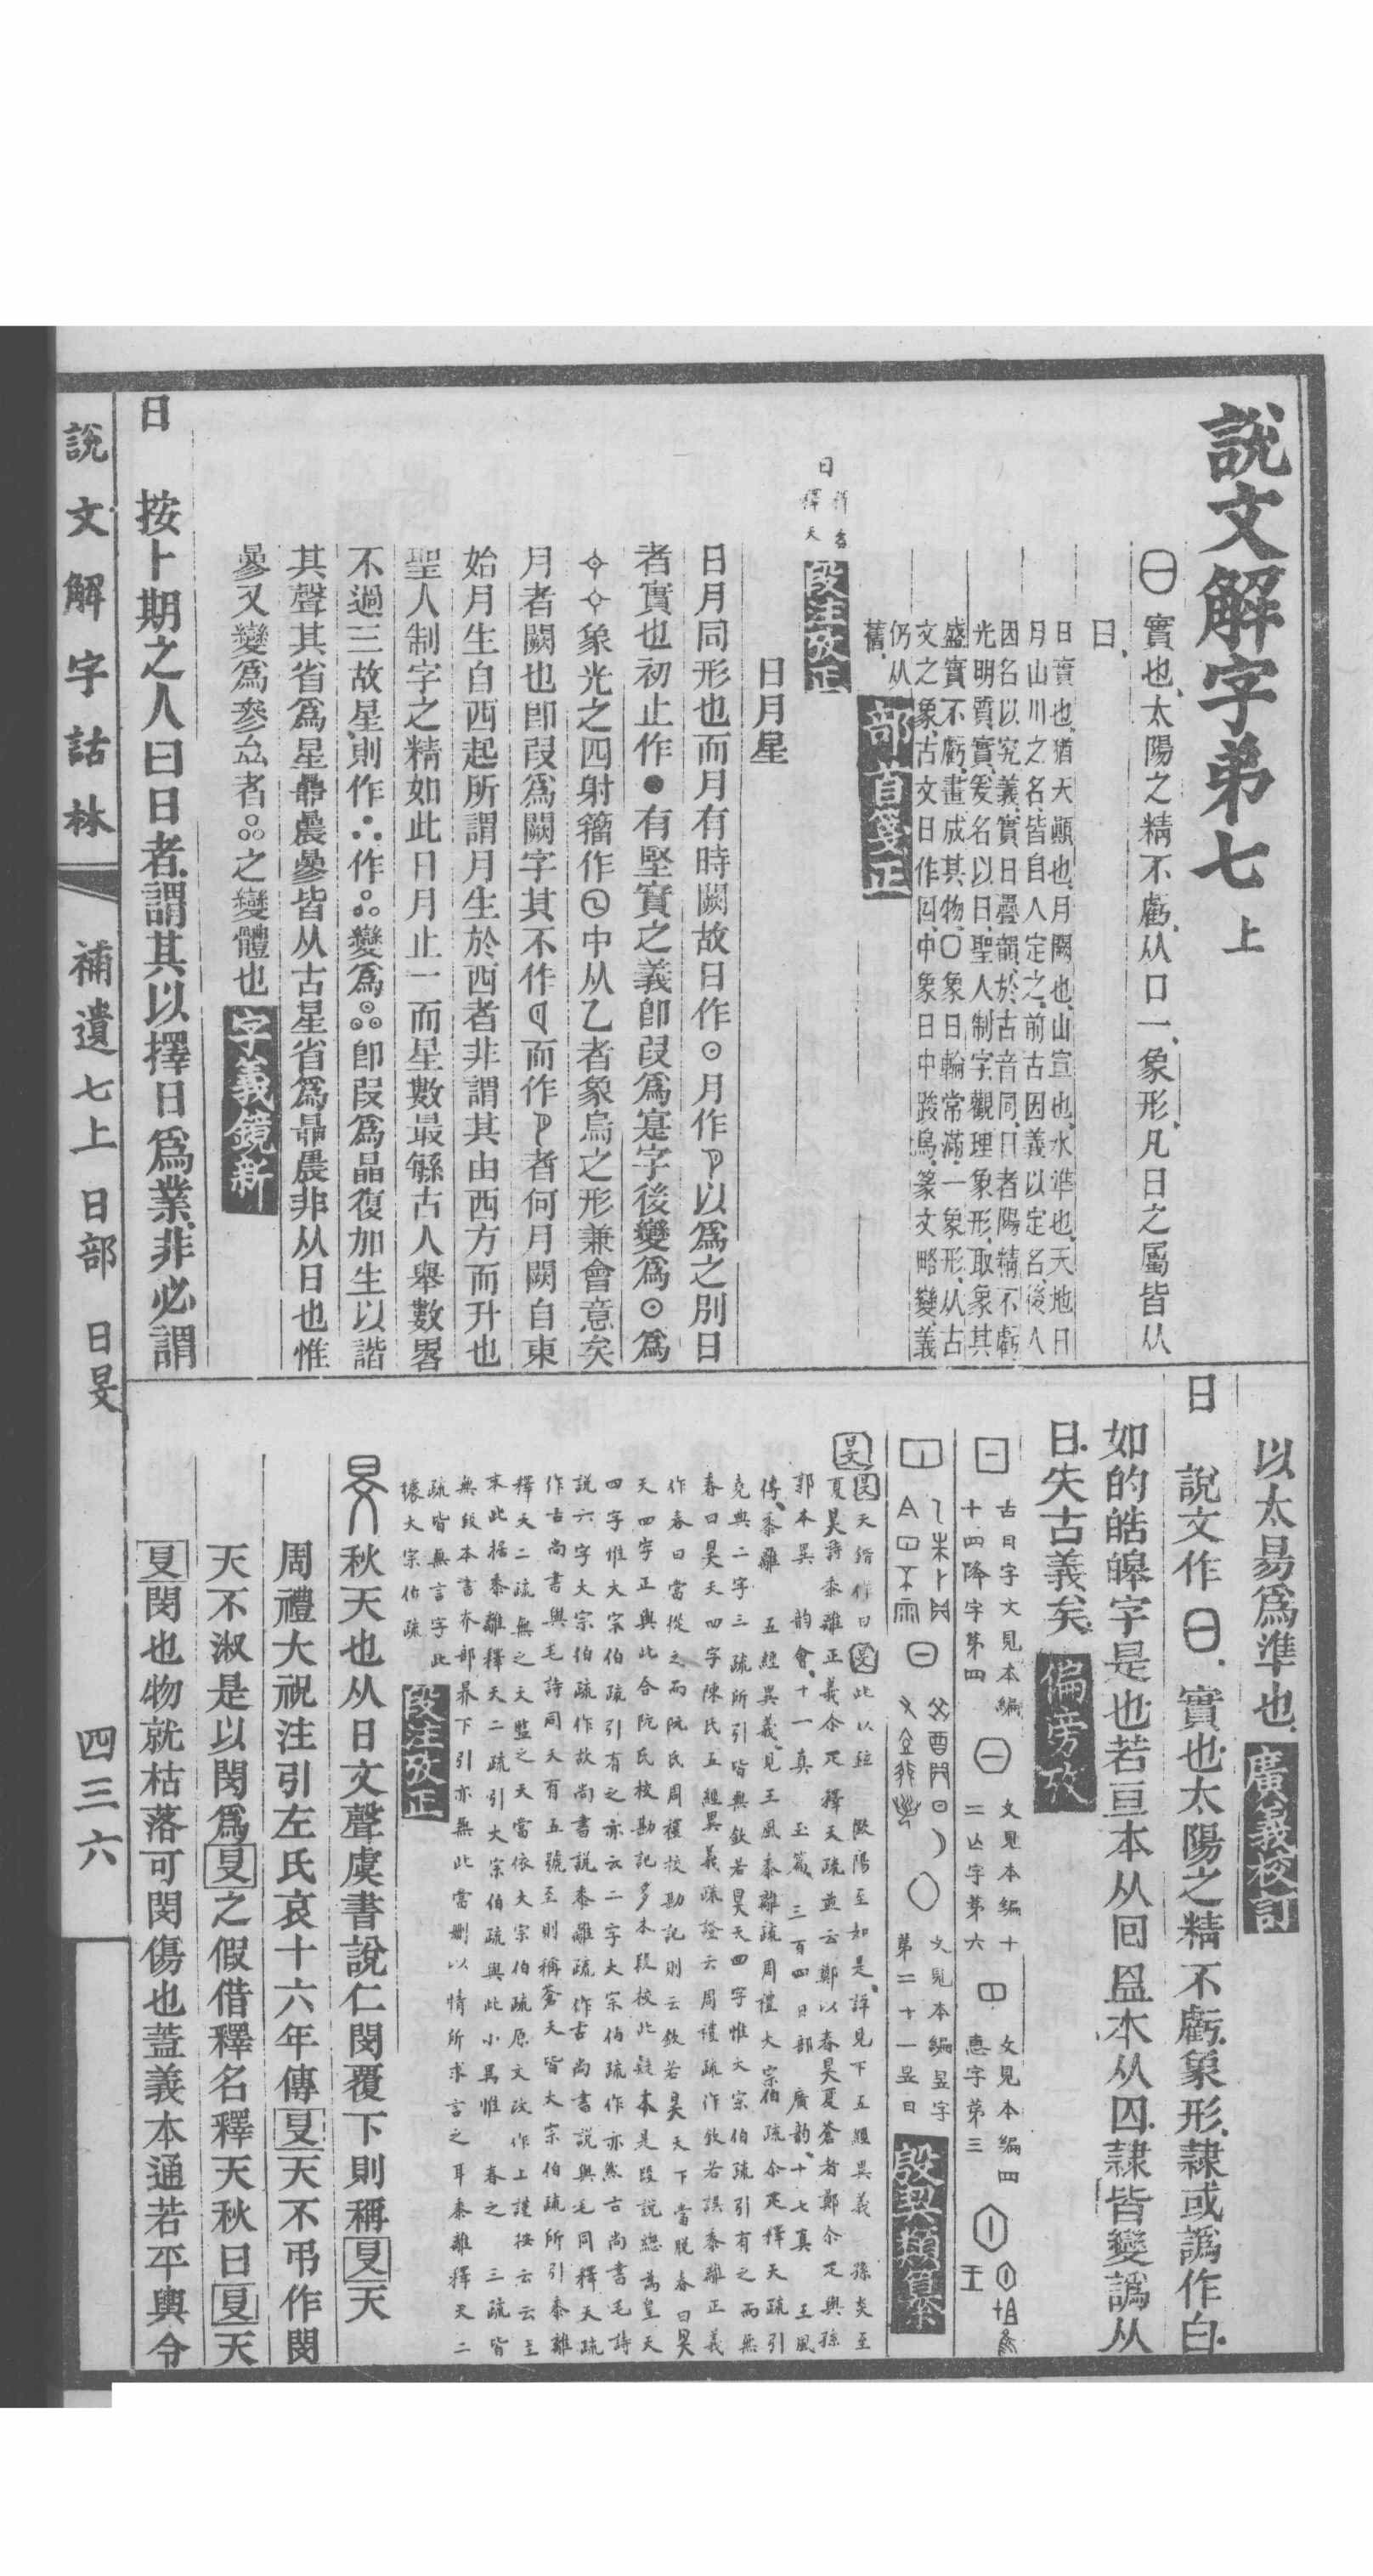 說文解字弟七上
實也、太陽之精不虧、从口一、象形、凡日之屬皆从
日、
日實也、猶天顯也、月闕也、山宣也、水準也、天地日
月山川之名、皆自人定之、前古因義以定名、後人
因名以究義、實日疊韻、於古音同、日者陽精不虧、
光明質實、爰名以日、聖人制字、觀理象形、取象其
盛實不虧、畫成其物、○象日輪常滿、一象形、从古
文之象、古文日作囙、中象日中踆烏、篆文略變、義
仍从
舊、部首箋正
日 釋名 釋天 段注攷正
日月星
日月同形也而月有時闕故日作⊙月作以爲之別日
者實也初止作●有堅實之義卽叚爲寔字後變爲⊙爲
象光之四射籀作中从乙者象烏之形兼會意矣
月者闕也卽叚爲闕字其不作而作者何月闕自東
始月生自西起所謂月生於西者非謂其由西方而升也
聖人制字之精如此日月止一而星數最繇古人舉數畧
不過三故星則作∴作變爲卽叚爲晶復加生以諧
其聲其省爲星曐農曑皆从古星省爲曐農非从日也惟
曑又變爲參厽者之變體也 字義鏡新
日 按卜期之人曰日者、謂其以擇日爲業、非必謂
以太易爲準也、廣義校訂
日 說文作、實也、太陽之精不虧、象形、隸或譌作白、
如的皓皞字是也、若亘本从囘昷本从囚、隸皆變譌从
日、失古義矣、偏旁攷
古日字文見本編 文見本編十 文見本編四
十四降字第四 二亾字第六 惠字第三
文見本編昱字
第二十一昱日 殷契類纂
旻 天 此以 歐陽至如是、詳見下五經異義 孫炎至
夏昊詩黍離正義尒疋釋天疏並云鄭以春昊夏蒼者鄭尒疋與孫
郭本異 韵會、十一真 玉篇、三百四日部 廣韵、十七真 王風
傳、黍離 五經異義、見王風黍離疏周禮大宗伯疏尒疋釋天疏引
堯典二字三疏所引皆無欽若昊天四字惟大宗伯疏引有之而無
春曰昊天四字陳氏五經異義疏證云周禮疏作欽若誤黍離正義
作春曰當從之而阮氏周禮挍勘記則云欽若昊天下當脫春曰昊
天四字正與此合阮氏校勘記多本段校此疑本是段說 爲皇天
四字惟大宗伯疏引有之亦云二字大宗伯疏作亦然古尚書毛詩
說六字大宗伯疏作故尚書說黍離疏作古尚書說與毛同釋天疏
作古尚書與毛詩同天有五號至則稱蒼天皆大宗伯疏所引黍離
釋天二疏無之天監之天當依大宗伯疏原文改作上謹按云云至
末此據黍離釋天二疏引大宗伯疏與此小異惟 春之 三疏皆
無段本書夰部界下引亦無此當刪以情所求言之耳黍離釋天二
疏皆無言字此
據大宗伯疏 段注攷正
秋天也从日文聲虞書說仁閔覆下則稱旻天
周禮大祝注引左氏哀十六年傳旻天不弔作閔
天不淑是以閔爲旻之假借釋名釋天秋曰旻天
旻閔也物就枯落可閔傷也蓋義本通若平輿令
說文解字詁林 補遺七上 日部 日旻 四三六